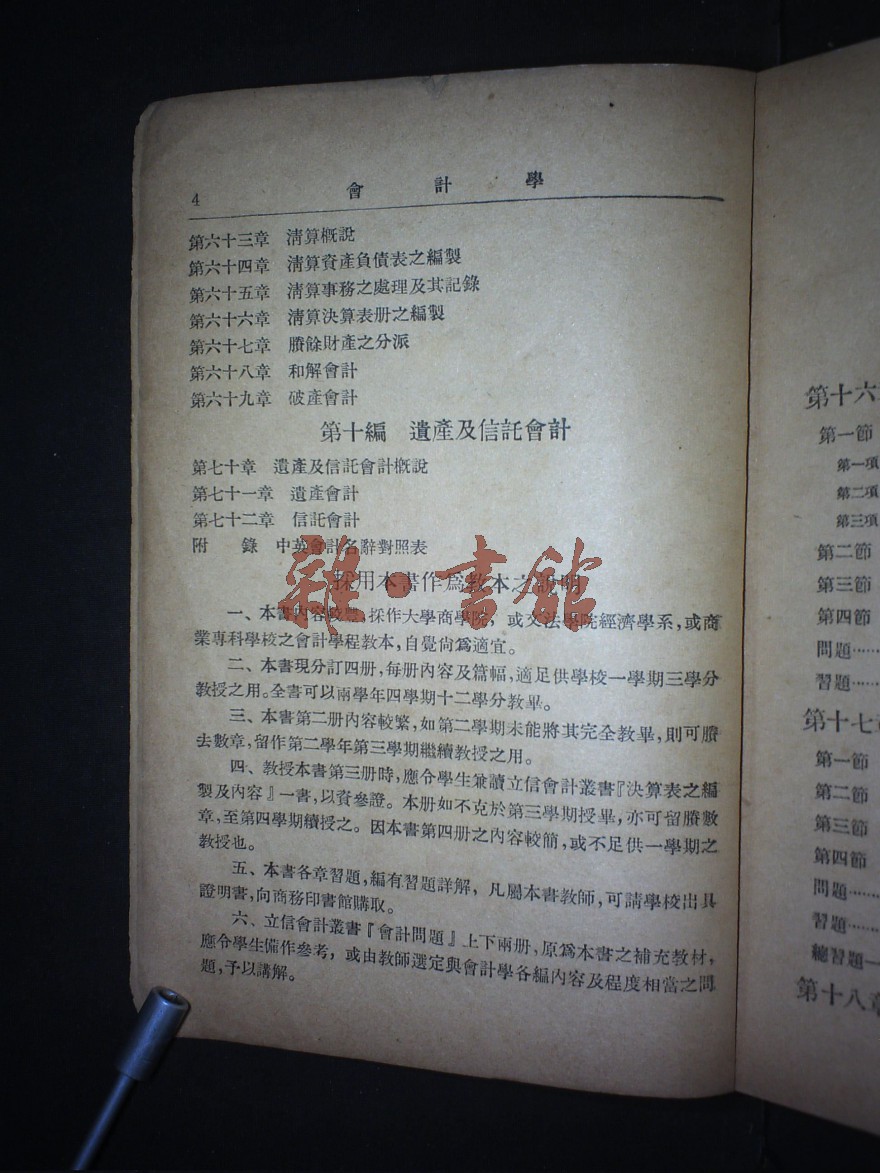 4 會計學
第六十三章 淸算概說
第六十四章 淸算資產負債表之編製
第六十五章 淸算事務之處理及其記錄
第六十六章 淸算決算表册之編製
第六十七章 賸餘財產之分派
第六十八章 和解會計
第六十九章 破產會計
第十編 遺產及信託會計
第七十章 遺產及信託會計概說
第七十一章 遺產會計
第七十二章 信託會計
附錄 中英會計名辭對照表
雜·書館
採用本書作爲教本之說明
一、本書內容較豐,採作大學商學院,或文法學院經濟學系,或商
業專科學校之會計學程教本,自覺尙爲適宜。
二、本書現分訂四册,每册內容及篇幅,適足供學校一學期三學分
教授之用。全書可以兩學年四學期十二學分教畢。
三、本書第二册內容較繁,如第二學期未能將其完全教畢,則可賸
去數章,留作第二學年第三學期繼續教授之用。
四、教授本書第三册時,應令學生兼讀立信會計叢書『決算表之編
製及內容』一書,以資參證。本册如不克於第三學期授畢,亦可留賸數
章,至第四學期續授之。因本書第四册之內容較簡,或不足供一學期之
教授也。
五、本書各章習題,編有習題詳解,凡屬本書教師,可請學校出具
證明書,向商務印書館購取。
六、立信會計叢書『會計問題』上下兩册,原爲本書之補充教材,
應令學生備作參考,或由教師選定與會計學各編內容及程度相當之問
題,予以講解。
第十六
第一節
第一項
第二項
第三項
第二節
第三節
第四節
問題……
習題……
第十七
第一節
第二節
第三節
第四節
問題……
習題……
總習題
第十八章